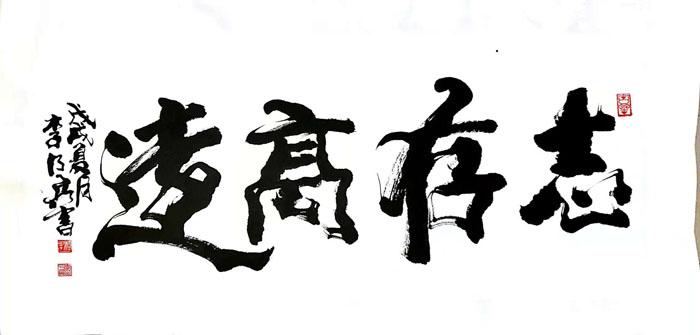 志存高遠
戊戌夏月
李 書